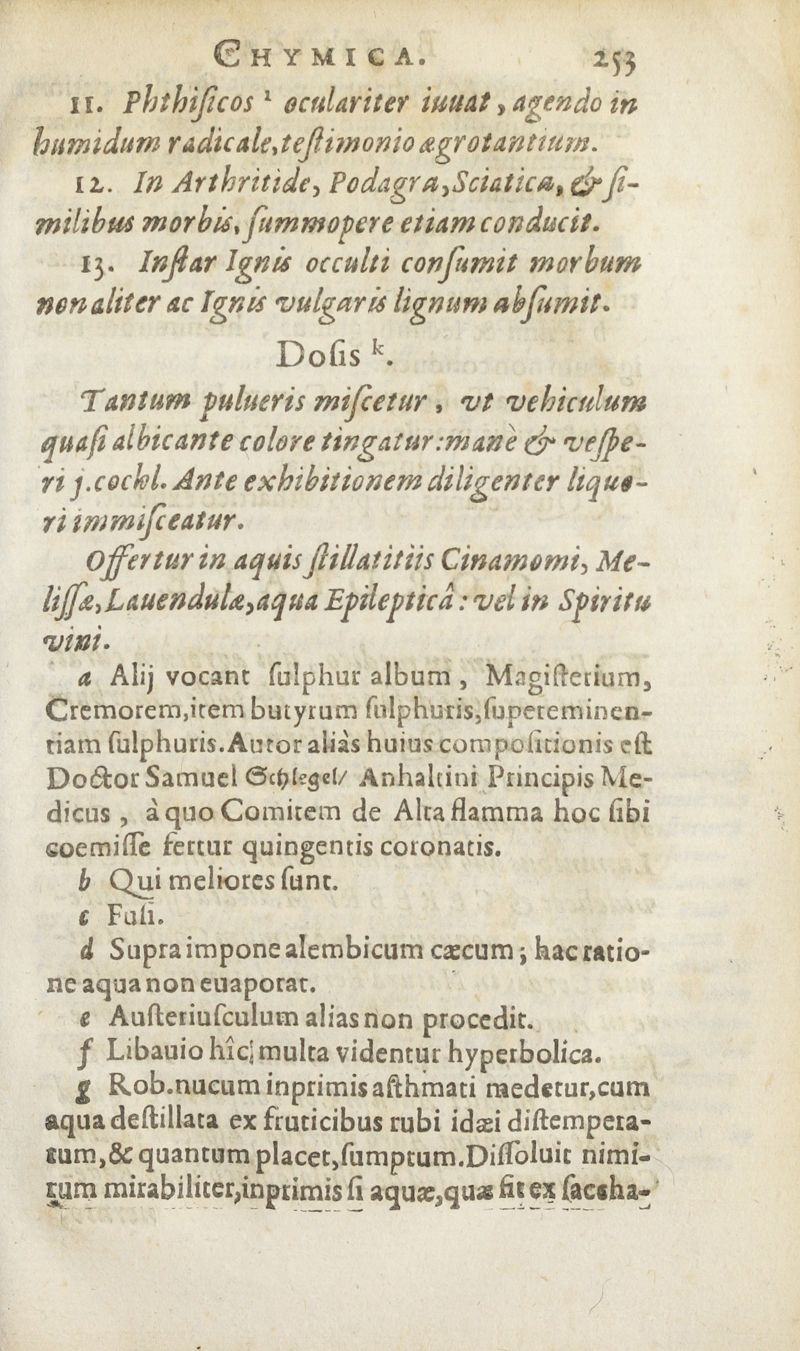 CHYMICA. 253
11. Phthiſicos ¹ oculariter iuuat, agendo in
humidum radicale, teſtimonio ægrotantium.
12. In Arthritide, Podagra, Sciatica, & ſi-
milibus morbis, ſummopere etiam conducit.
13. Inſtar Ignis occulti conſumit morbum
non aliter ac Ignis vulgaris lignum abſumit.
Doſis ᵏ.
Tantum pulueris miſcetur, vt vehiculum
quaſi albicante colore tingatur: manè & veſpe-
ri j. cochl. Ante exhibitionem diligenter liquo-
ri immiſceatur.
Offertur in aquis ſtillatitiis Cinamomi, Me-
liſſæ, Lauendulæ, aqua Epilepticâ: vel in Spiritu
vini.
a Alij vocant ſulphur album, Magiſterium,
Cremorem, item butyrum ſulphuris, ſupereminen-
tiam ſulphuris. Autor aliàs huius compoſitionis eſt
Doctor Samuel Schlegel/ Anhaltini Principis Me-
dicus, à quo Comitem de Alta flamma hoc ſibi
coemiſſe fertur quingentis coronatis.
b Qui meliores ſunt.
c Fuſi.
d Supra impone alembicum cæcum; hac ratio-
ne aqua non euaporat.
e Auſteriuſculum alias non procedit.
f Libauio hîc multa videntur hyperbolica.
g Rob. nucum inprimis aſthmati medetur, cum
aqua deſtillata ex fruticibus rubi idæi diſtempera-
tum, & quantum placet, ſumptum. Diſſoluit nimi-
rum mirabiliter, inprimis ſi aquæ, quæ fit ex ſaccha-